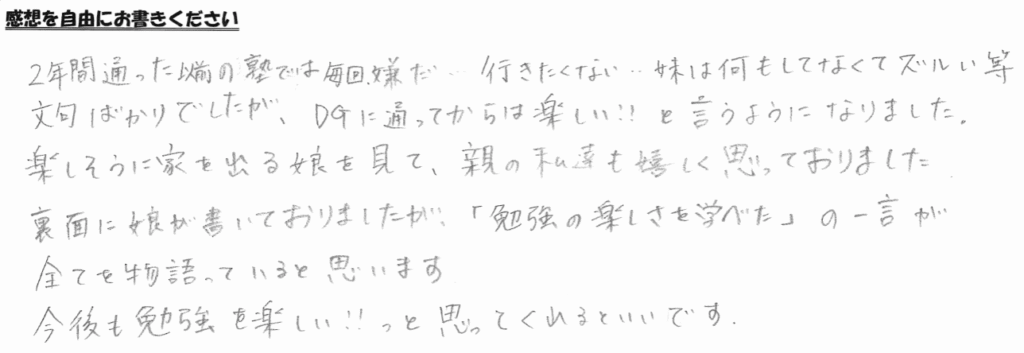 感想を自由にお書きください
2年間通った以前の塾では毎回、嫌だ…行きたくない…妹は何もしてなくてズルい等
文句ばかりでしたが、DGに通ってからは楽しい!!と言うようになりました。
楽しそうに家を出る娘を見て、親の私達も嬉しく思っておりました
裏面に娘が書いておりましたが、「勉強の楽しさを学べた」の一言が
全てを物語っていると思います
今後も勉強を楽しい!!っと思ってくれるといいです.